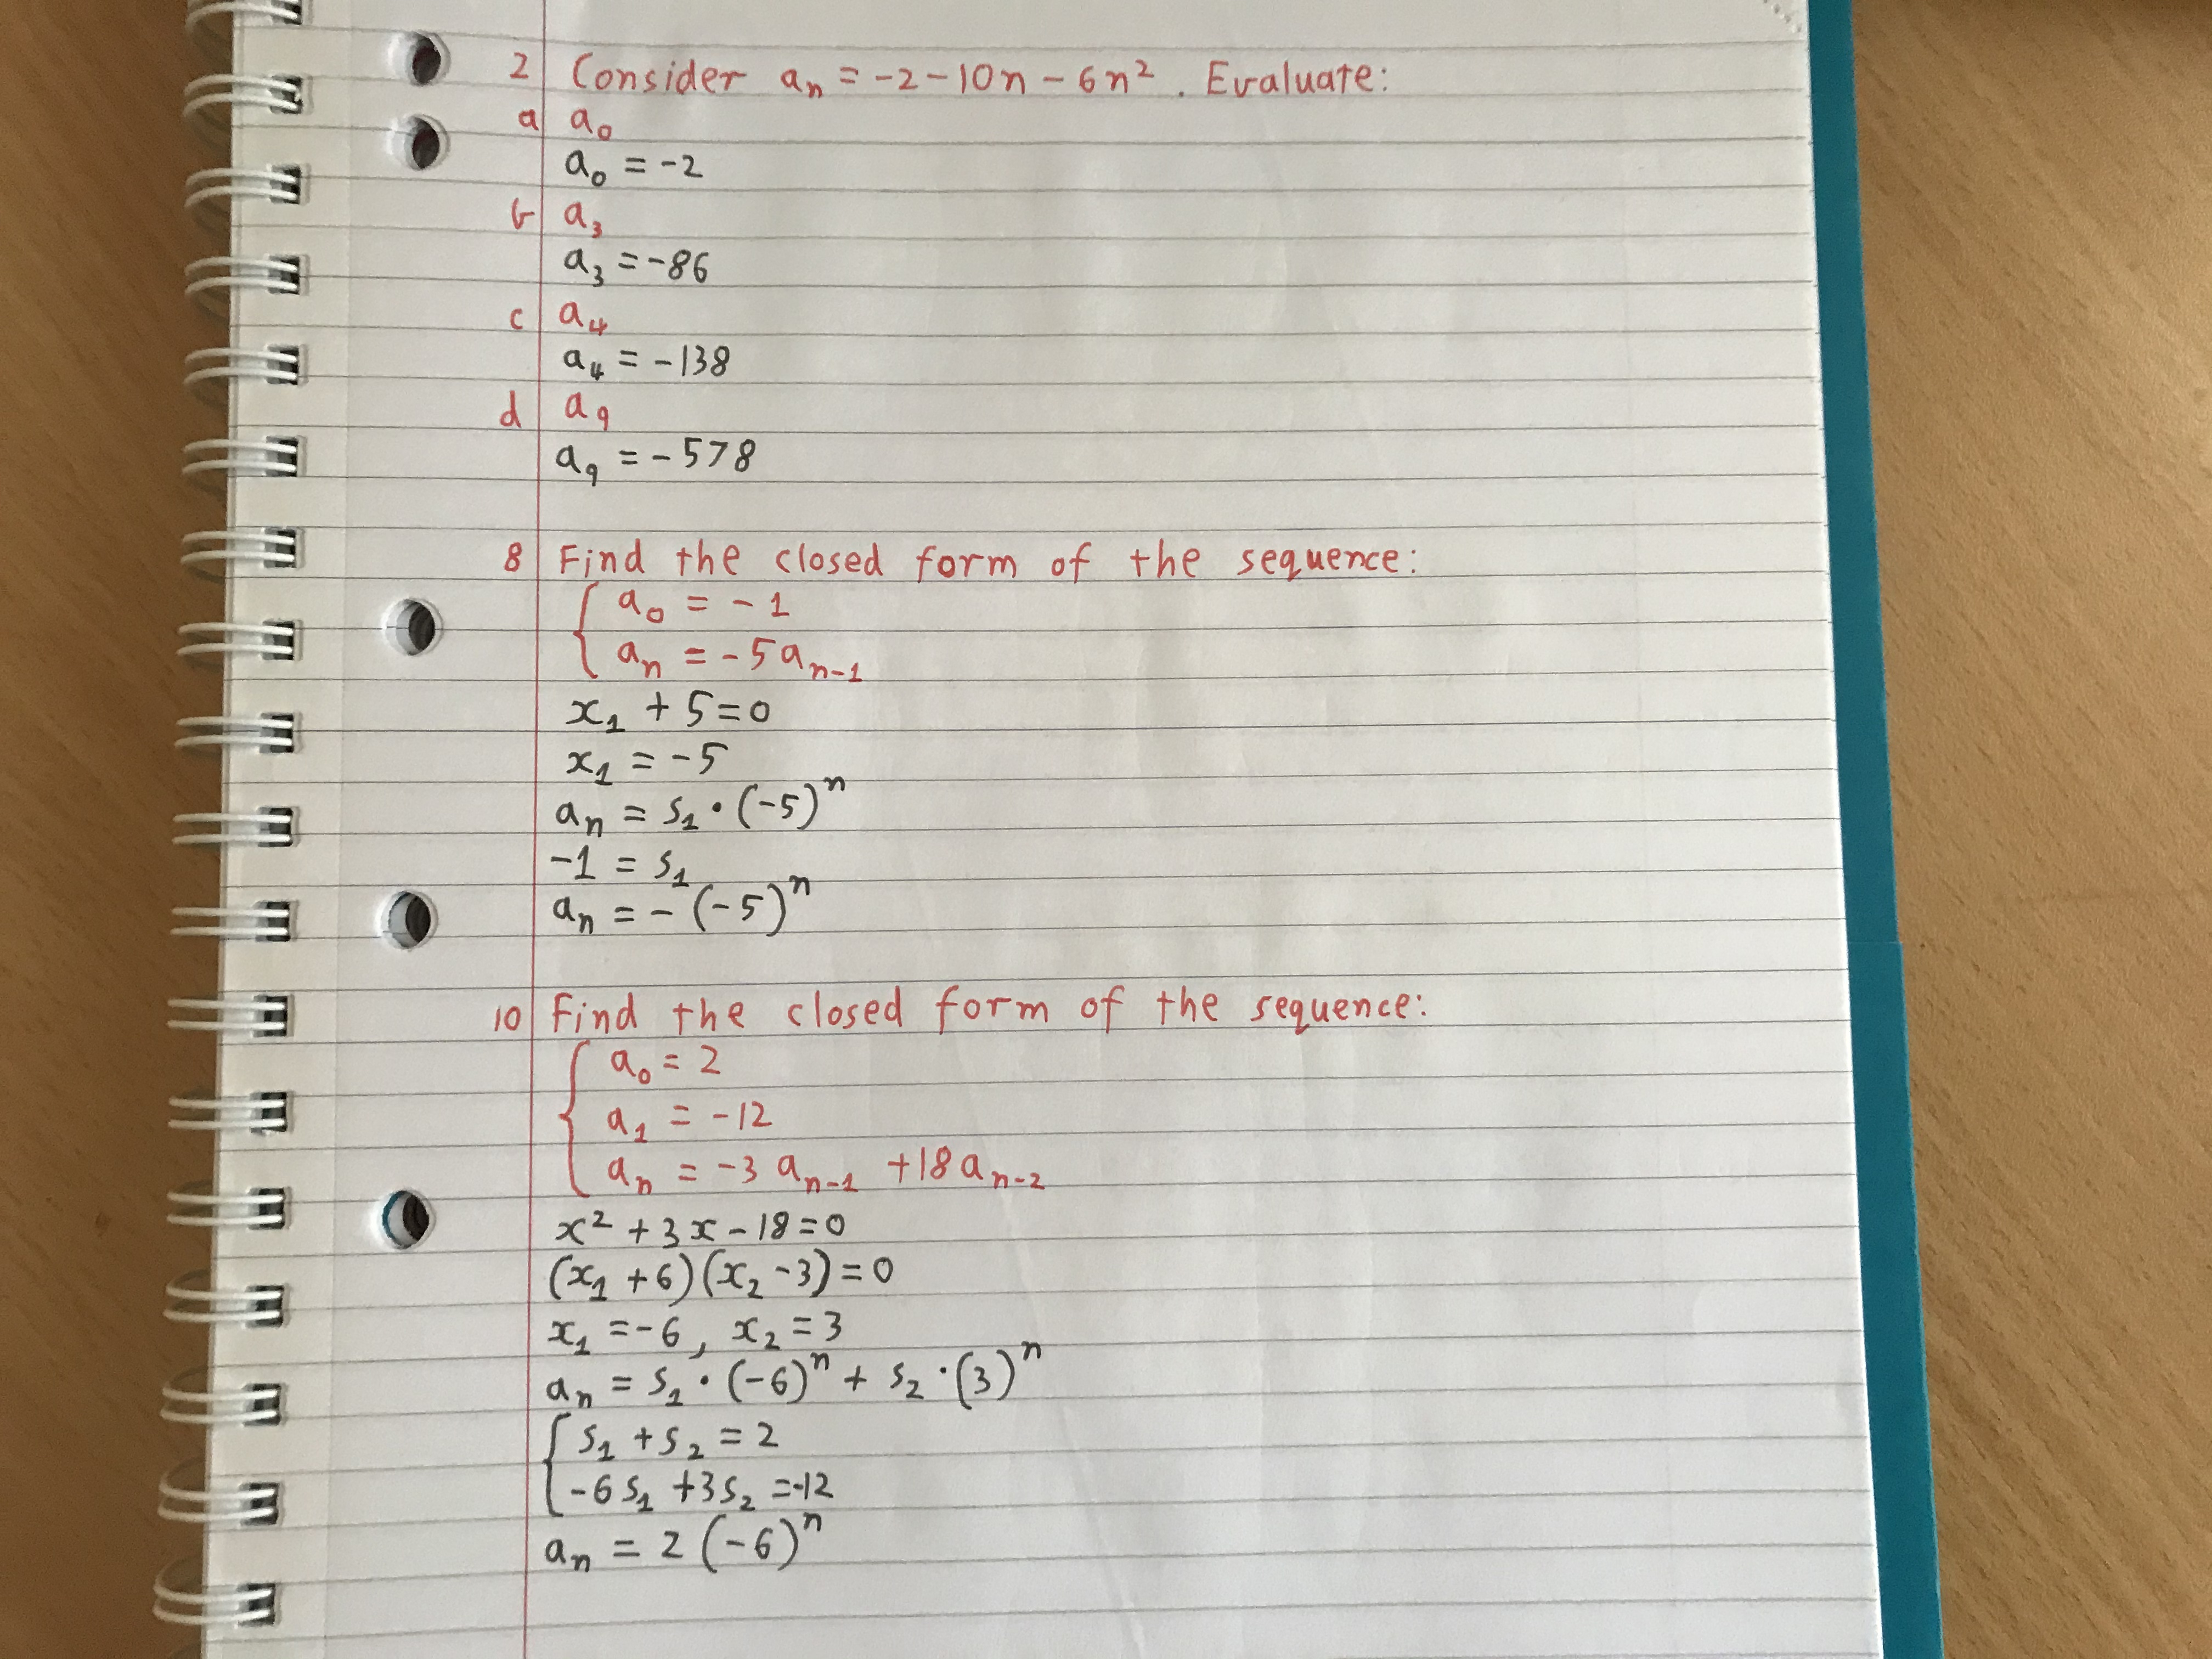 2 Consider aₙ = -2 - 10n - 6n². Evaluate:
a a₀
a₀ = -2
b a₃
a₃ = -86
c a₄
a₄ = -138
d a₉
a₉ = -578
8 Find the closed form of the sequence:
{ a₀ = -1
aₙ = -5aₙ₋₁
x₁ + 5 = 0
x₁ = -5
aₙ = s₁ · (-5)ⁿ
-1 = s₁
aₙ = -(-5)ⁿ
10 Find the closed form of the sequence:
{ a₀ = 2
a₁ = -12
aₙ = -3aₙ₋₁ + 18aₙ₋₂
x² + 3x - 18 = 0
(x₁ + 6)(x₂ - 3) = 0
x₁ = -6, x₂ = 3
aₙ = s₁ · (-6)ⁿ + s₂ · (3)ⁿ
{ s₁ + s₂ = 2
-6s₁ + 3s₂ = -12
aₙ = 2(-6)ⁿ